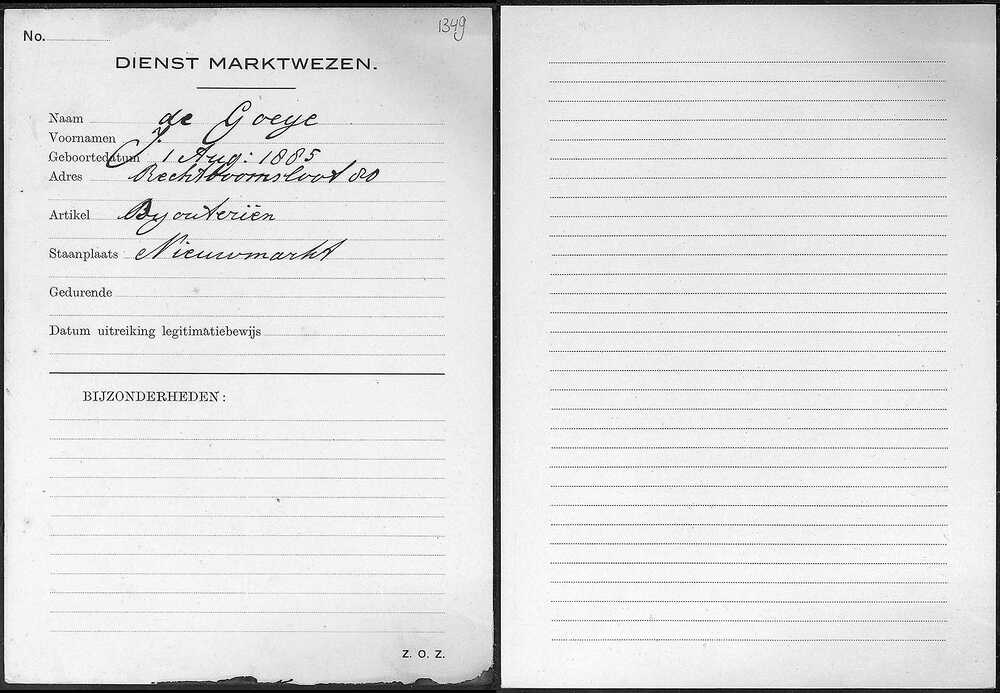 1349
No.
DIENST MARKTWEZEN.
Naam de Goeye
Voornamen J.
Geboortedatum 1 Aug: 1885
Adres Rechtboomsloot 80
Artikel Byouteriën
Staanplaats Nieuwmarkt
Gedurende
Datum uitreiking legitimatiebewijs
BIJZONDERHEDEN:
Z. O. Z.